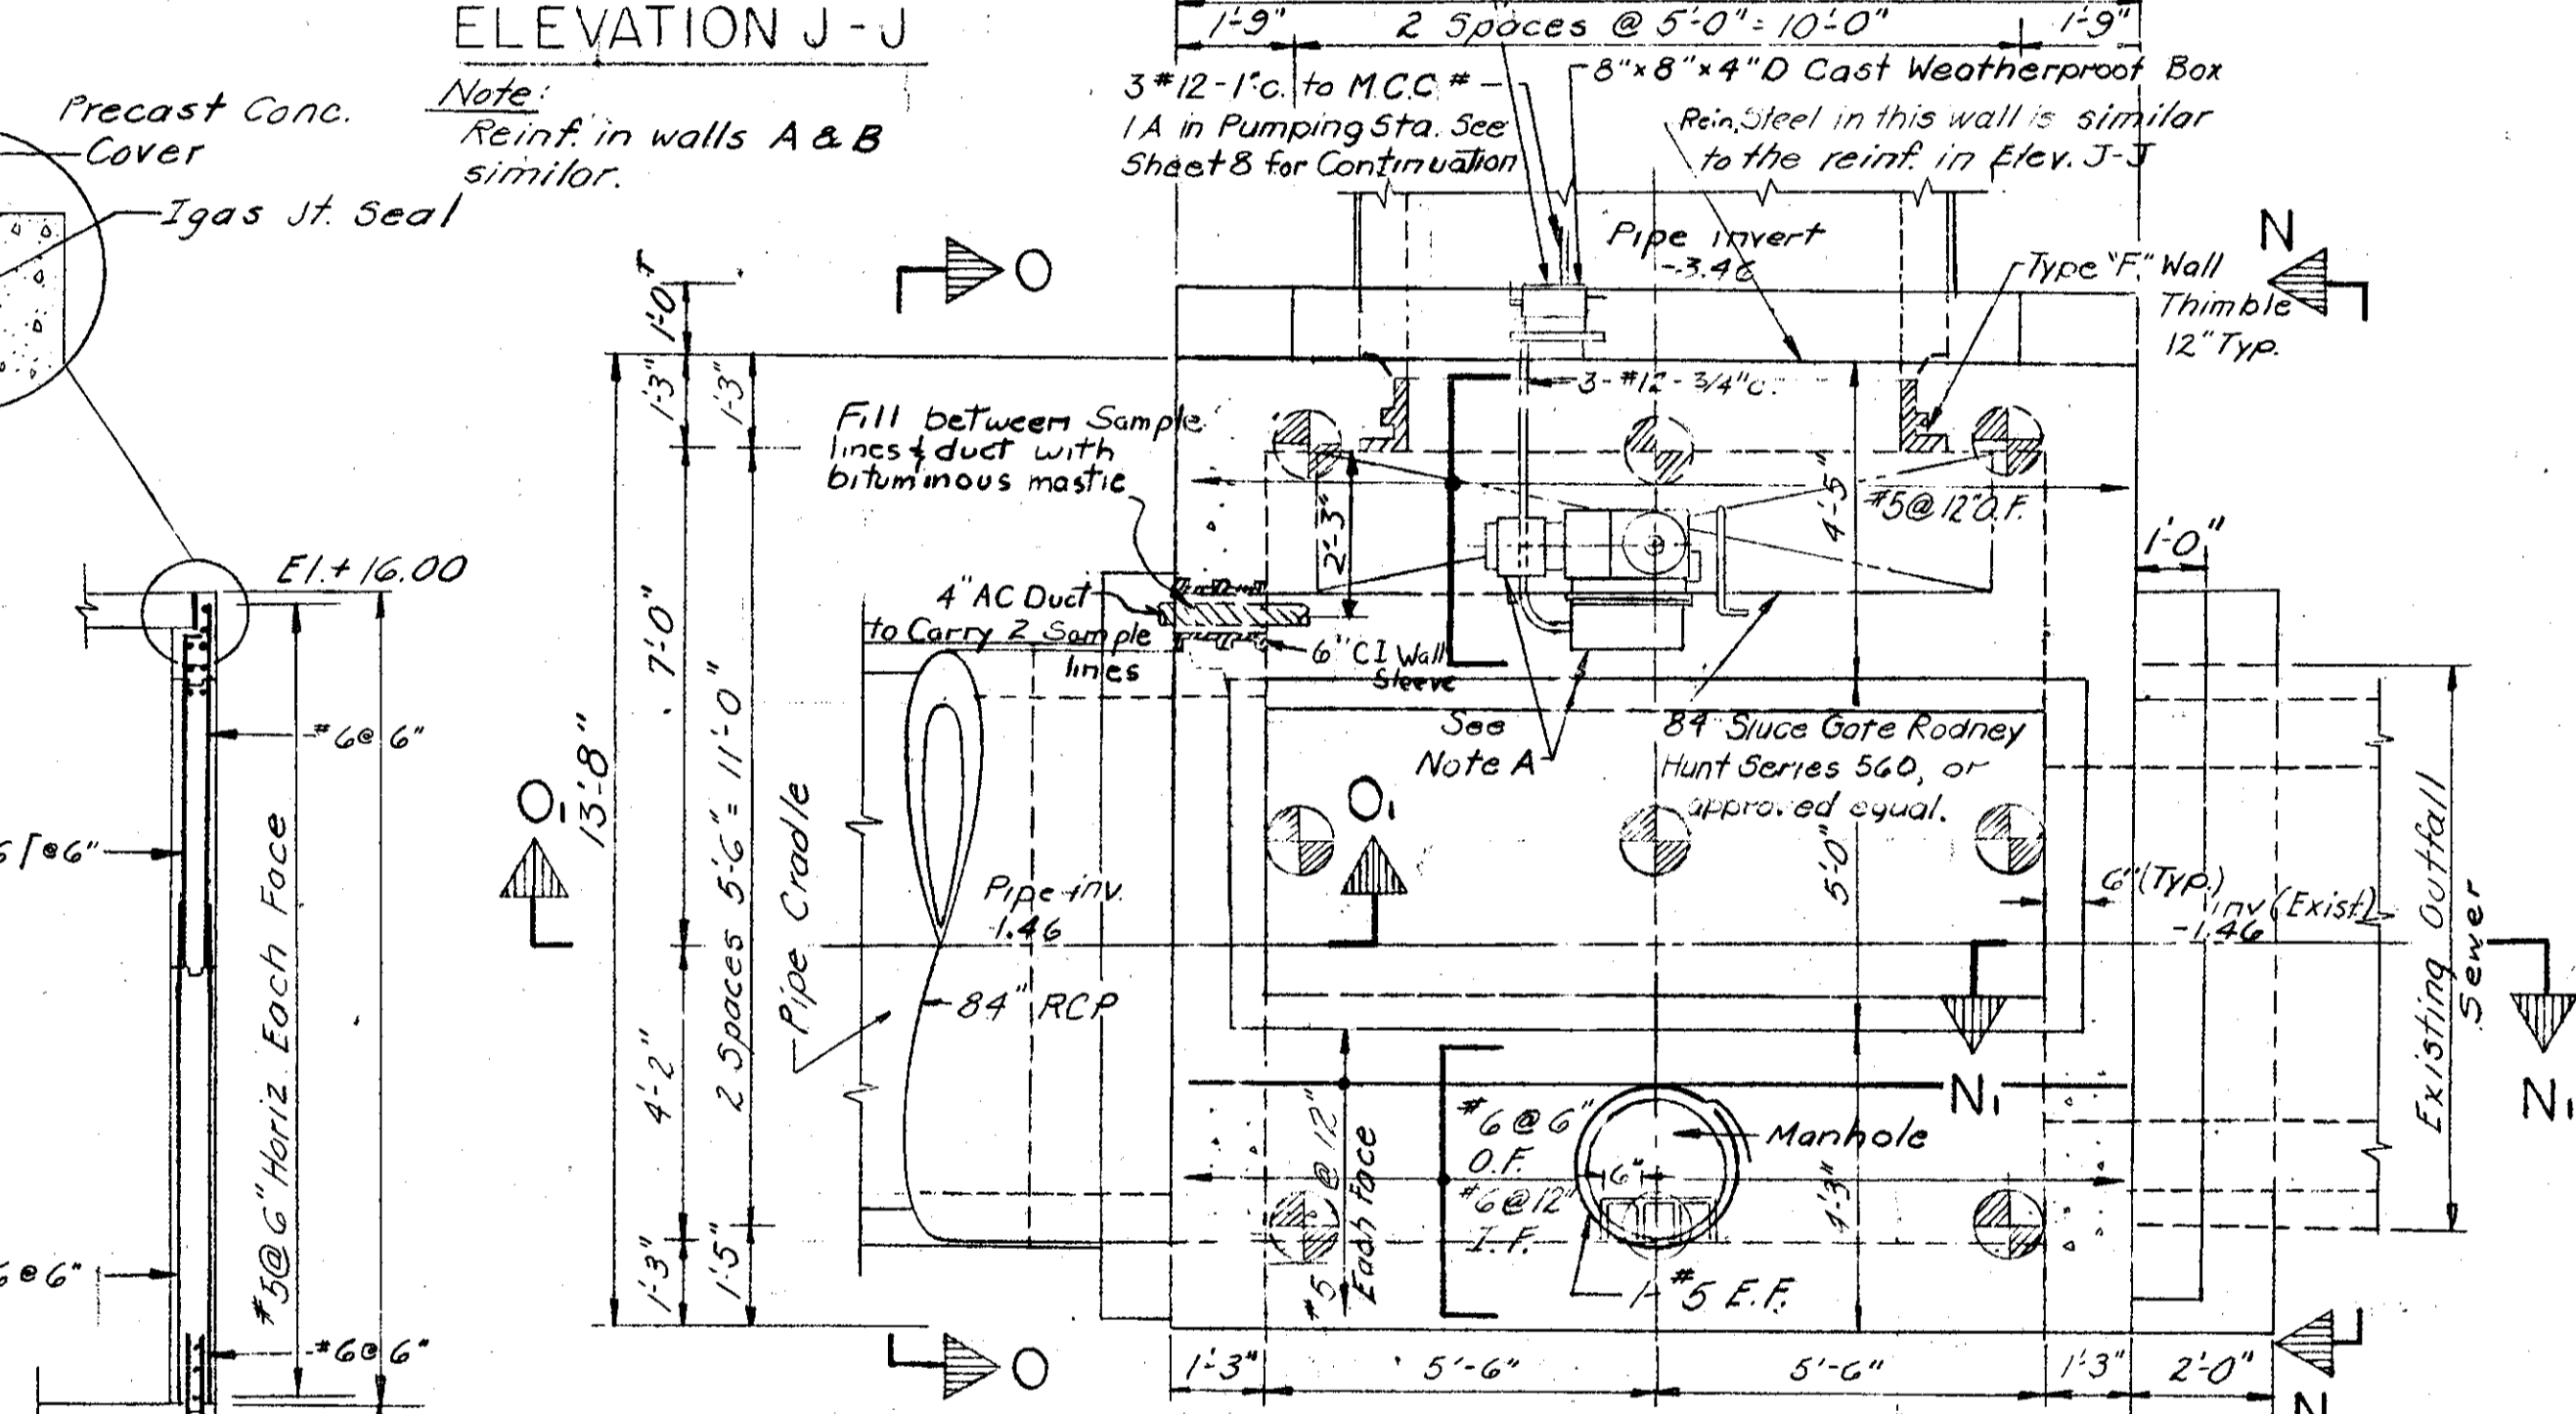 ELEVATION J-J
Note:
Reinf. in walls A & B
similar.
Precast Conc.
Cover
Igas Jt. Seal
El. + 16.00
#6@6"
@6"
#5@6" Horiz. Each Face
@6"
#6@6"
1'-9"
2 Spaces @ 5'-0" = 10'-0"
1'-9"
3 #12-1"c. to M.C.C #
1A in Pumping Sta. See
Sheet 8 for Continuation
8"x8"x4"D Cast Weatherproof Box
Rein. Steel in this wall is similar
to the reinf. in Elev. J-J
Pipe invert
-3.46
Type "F" Wall
Thimble
12" Typ.
N
O
1'-0"
1'-3"
1'-3"
7'-0"
13'-8"
2 Spaces 5'-6" = 11'-0"
4'-2"
1'-3"
1'-5"
3-#12-3/4"c.
Fill between Sample
lines & duct with
bituminous mastic
2'-3"
4'-5"
#5@12"O.F.
1'-0"
4" AC Duct
to Carry 2 Sample
lines
6" CI Wall
Sleeve
See
Note A
84" Sluce Gate Rodney
Hunt Series 560, or
approved equal.
O1
O1
Pipe Cradle
Pipe inv.
-1.46
84" RCP
5'-0"
6"(Typ.)
inv (Exist)
-1.46
Existing Outfall
Sewer
N1
N1
#5 @ 12"
Each Face
#6@6"
O.F.
#6@12"
I.F.
6"
Manhole
4'-3"
1-#5 E.F.
O
1'-3"
5'-6"
5'-6"
1'-3"
2'-0"
N